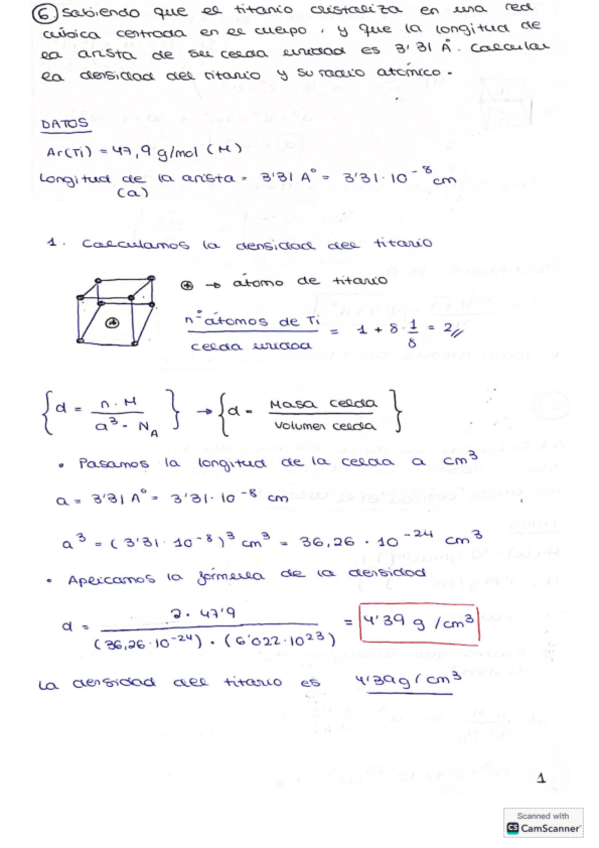 6. Sabiendo que el titanio cristaliza en una red
cúbica centrada en el cuerpo, y que la longitud de
la arista de su celda unidad es 3'31 Å. Calcular
la densidad del titanio y su radio atómico.
DATOS
Ar(Ti) = 47,9 g/mol (M)
Longitud de la arista = 3'31 A° = 3'31·10⁻⁸ cm
(a)
1. Calculamos la densidad del titanio
⊕ → átomo de titanio
nº átomos de Ti / celda unidad = 1 + 8·1/8 = 2//
{d = n·M / a³·N_A} → {d = Masa celda / Volumen celda}
• Pasamos la longitud de la celda a cm³
a = 3'31 A° = 3'31·10⁻⁸ cm
a³ = (3'31·10⁻⁸)³ cm³ = 36,26·10⁻²⁴ cm³
• Aplicamos la fórmula de la densidad
d = 2·47'9 / (36,26·10⁻²⁴)·(6'022·10²³) = 4'39 g/cm³
La densidad del titanio es 4'39g/cm³
1
Scanned with
CS CamScanner